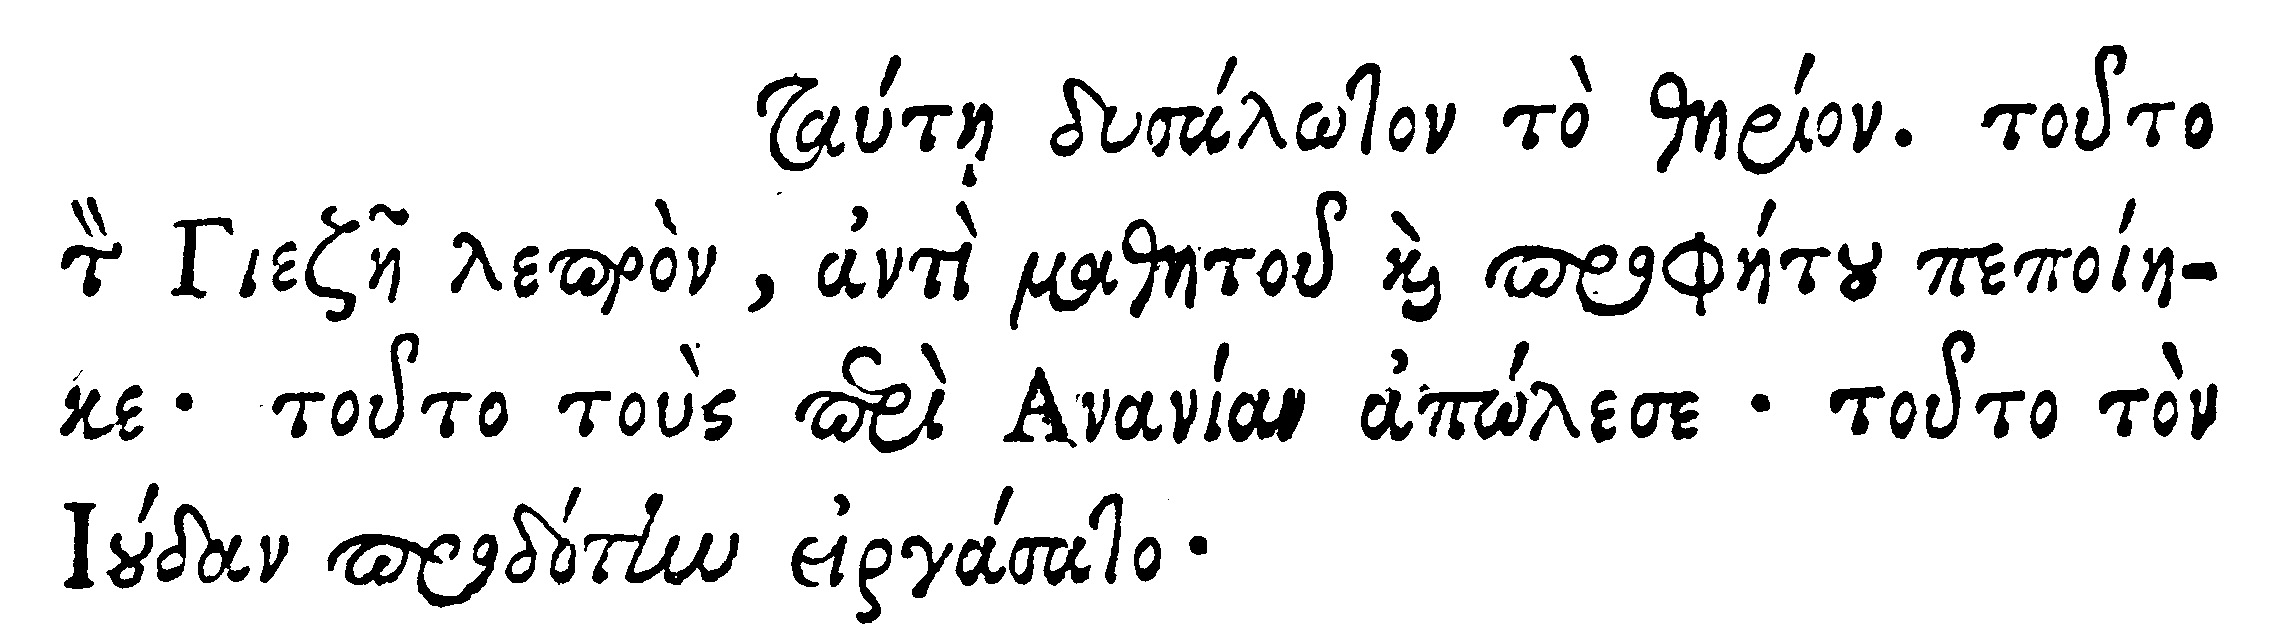 ταύτῃ δυσάλωτον τὸ θηρίον. τοῦτο
τὸν Γιεζῆ λεπρὸν, ἀντὶ μαθητοῦ καὶ προφήτου πεποίη-
κε· τοῦτο τοὺς περὶ Ανανίαν ἀπώλεσε· τοῦτο τὸν
Ιούδαν προδότην εἰργάσατο·